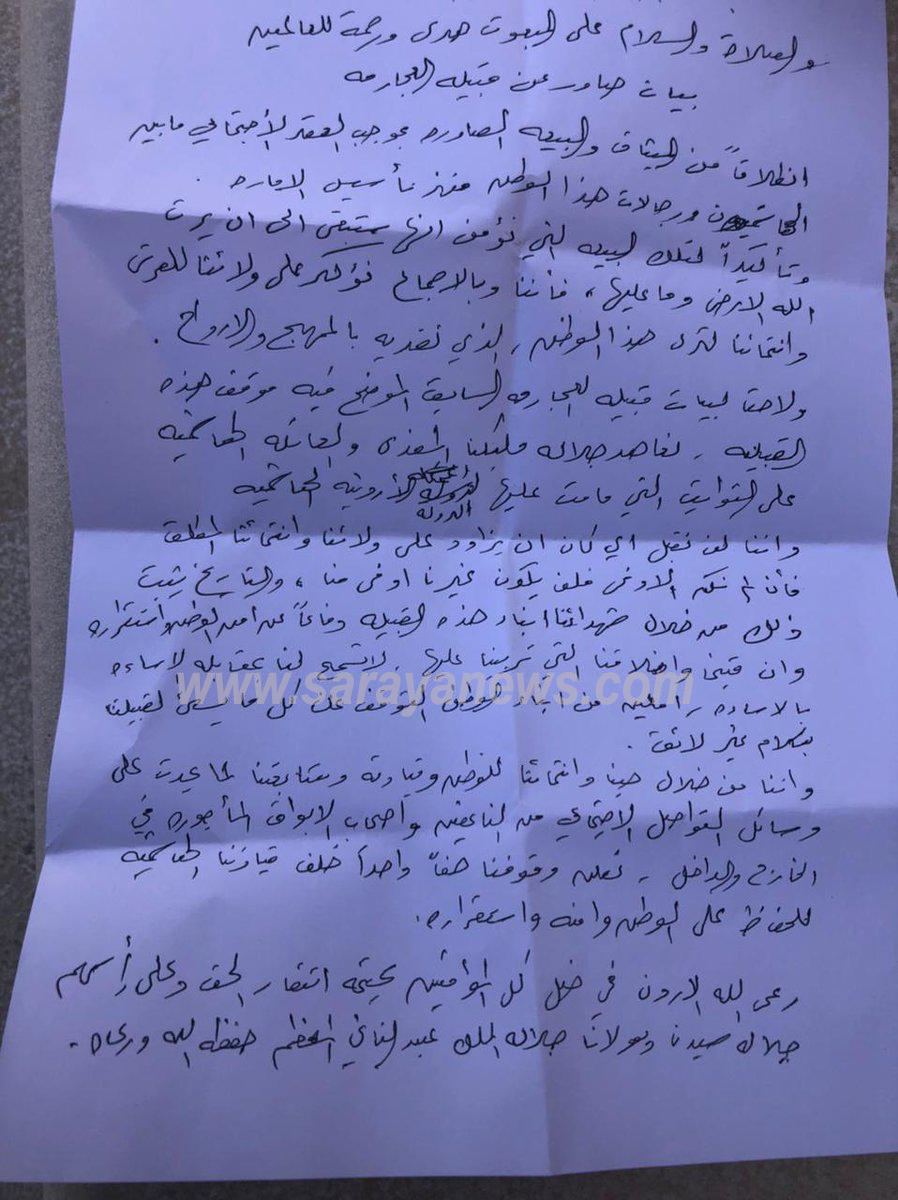 والصلاة والسلام على المبعوث هدى ورحمة للعالمين
بيان صادر عن قبيله العجارمه
انطلاقاً من الميثاق والبيعه الصادره بموجب العقد الأجتماعي مابين
الهاشميين ورجالات هذا الوطن منذ تأسيس الاماره .
وتأكيداً لتلك البيعه التي نؤمن انها ستبقى الى ان يرث
الله الارض وما عليها ، فأننا وبالاجماع نؤكد على ولائنا للعرش
وانتمائنا لثرى هذا الوطن ، الذي نفديه بالمهج والارواح .
ولاحقا لبيان قبيله العجارمه السابق الموضح فيه موقف هذه
القبيله ، نعاهد جلاله مليكنا المفدى والعائله الهاشميه
على الثوابت التي قامت عليها الدولة الأردنيه الهاشميه
واننا لن نقبل اي كان ان يزاود على ولائنا وانتمائنا المطلق
فأن لم نكن الاوفى فلن يكون غيرنا اوفى منا ، والتاريخ يثبت
ذلك من خلال شهدائنا ابناء هذه القبيله دفاعاً عن امن الوطن واستقراره
وان قيمنا واخلاقنا التي تربينا عليها لاتسمح لنا بمقابله الاساءه
بالاساءه ، املين من ابناء الوطن التوقف عن كل ما يسئ لقبيلتنا
بكلام غير لائق .
واننا من خلال حبنا وانتمائنا للوطن وقيادته ومتابعتنا لما يحدث على
وسائل التواصل الاجتماعي من الناعقين واصحاب الابواق المأجوره في
الخارج والداخل ، نعلن وقوفنا صفاً واحداً خلف قيادتنا الهاشميه
للحفاظ على الوطن وامنه واستقراره .
رعى الله الاردن في ظل كل المؤمنين بحتمية انتصار الحق وعلى رأسهم
جلاله سيدنا ومولانا جلاله الملك عبدالله الثاني المعظم حفظه الله ورعاه .
www.sarayanews.com